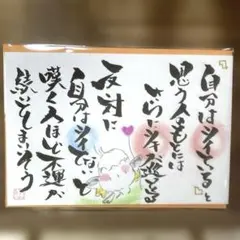 自分はツイてると
思う人のもとには
さらにツキが巡る
反対に
自分はツイてないと
嘆く人ほど不運が
続いてしまいそう